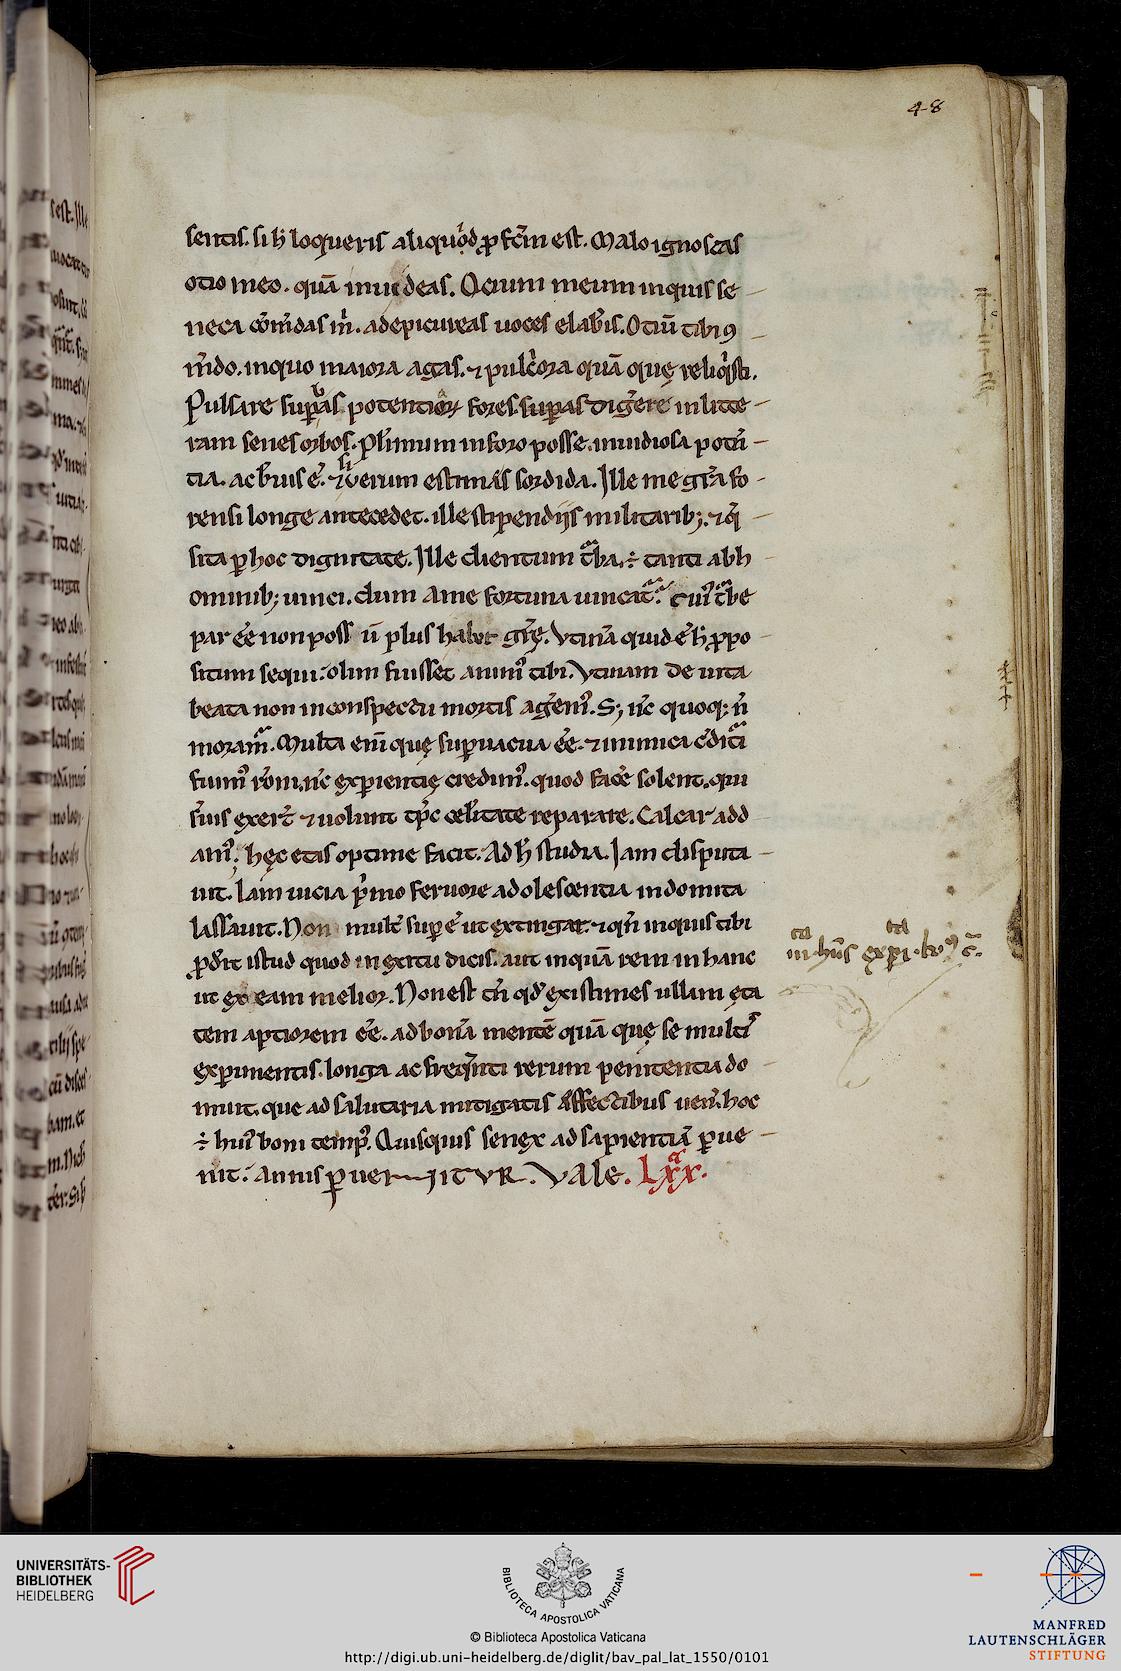 48
sentis. si h̄ loqueris aliquod ꝓfc̄m est. Malo ignoscas
otio meo. quā inuideas. Ocium meum inquis se
neca cōm̄das m̄. ad epicureas uoces elab̄is. Otiū tibi ꝯ
m̄do. in quo maiora agas. ⁊ pulc̄ora quā quę reliq̇sti.
Pulsare suꝑbas potentioꝝ fores. suꝑas diḡere in litte
ram senes orbos. Pl̄imum in foro posse. inuidiosa potēn
tia. ac b̄uis ē. ⁊ si uerum estimas sordida. Ille me gr̄a fo
rensi longe antecedet. ille stipendijs militarib; ⁊ q̄
sita ꝑ hoc dignitate. Ille clientum t̄ba. ÷ tanti ab h
ominib; uinci. dum a me fortuna uincat̄. Cui᷒ t̄be
par ēe non poss̄ ū plus habet gr̄ę. Vtinā quid ē h̄ ꝓpo
situm sequi. olim fuisset anim᷒ tibi. Vtinam de uita
beata non in conspectu mortis agēm᷒. S; n̄c quoq; n̄
moram̄. Multa eni̅ quę suꝑuacua ēe. ⁊ inimica c̄dit̄i
fuim᷒ rōni. n̄c exꝑientię credim᷒. quod facē solent. qui
s̄ius exer̄t ⁊ uolunt tp̄c cel̄itate reparare. Calcar add
am᷒. hęc etas optime facit. Ad h̄ studia. Iam disputa
uit. Iam uicia p̄mo feruore adolescentia indomita
lassauit. Non mult̄ suꝑē ut extingat. ⁊ qn̄ inquis tibi
ꝓd̄it istud quod in exitu dicis. aut in quā rem in hanc
ut ex eam melior. Non est tn̄ qd̄ existimes ullam ęta
tem aptiorem ēe. ad bonā mentē quā quę se multi᷒
exꝑimentis. longa ac freq̄nti rerum penitentia do
muit. que ad salutaria mitigatis affectibus uen̄. hoc
÷ hui᷒ boni temp᷒. Quisquis senex ad sapientiā ꝑue
nit. annis ꝑuenitVR. VAle. Lxx.
UNIVERSITÄTS-
BIBLIOTHEK
HEIDELBERG
BIBLIOTECA APOSTOLICA VATICANA
© Biblioteca Apostolica Vaticana
http://digi.ub.uni-heidelberg.de/diglit/bav_pal_lat_1550/0101
MANFRED
LAUTENSCHLÄGER
STIFTUNG